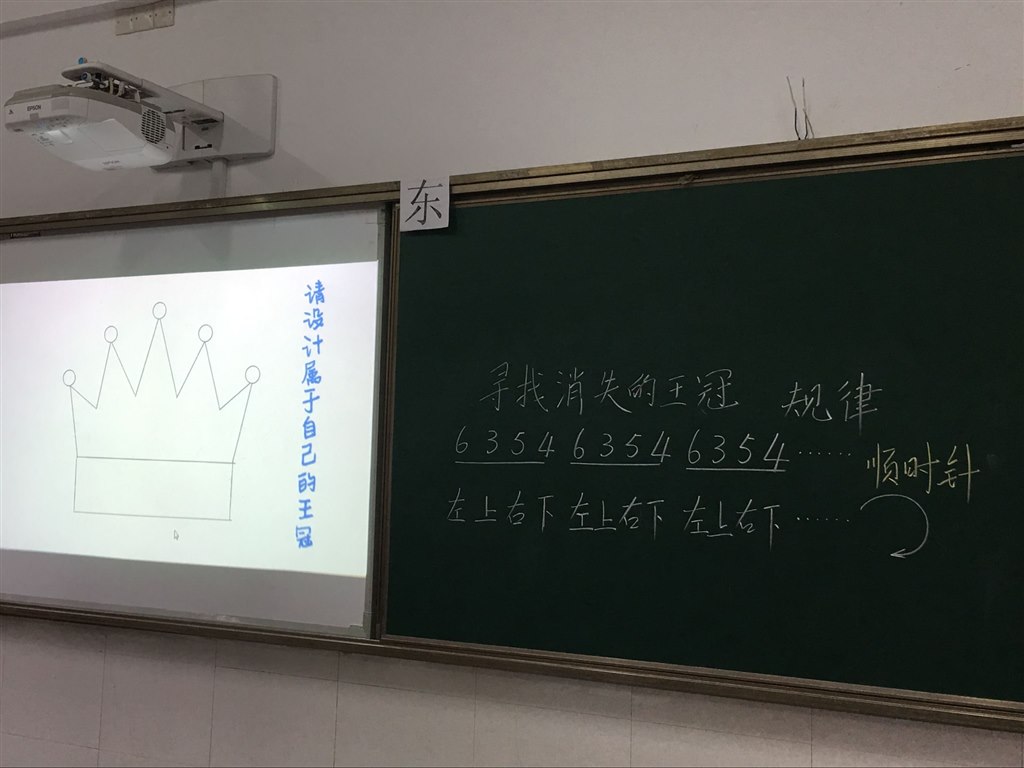 EPSON
东
请设计属于自己的王冠
寻找消失的王冠 规律
6354 6354 6354 ······
顺时针
左上右下 左上右下 左上右下 ······